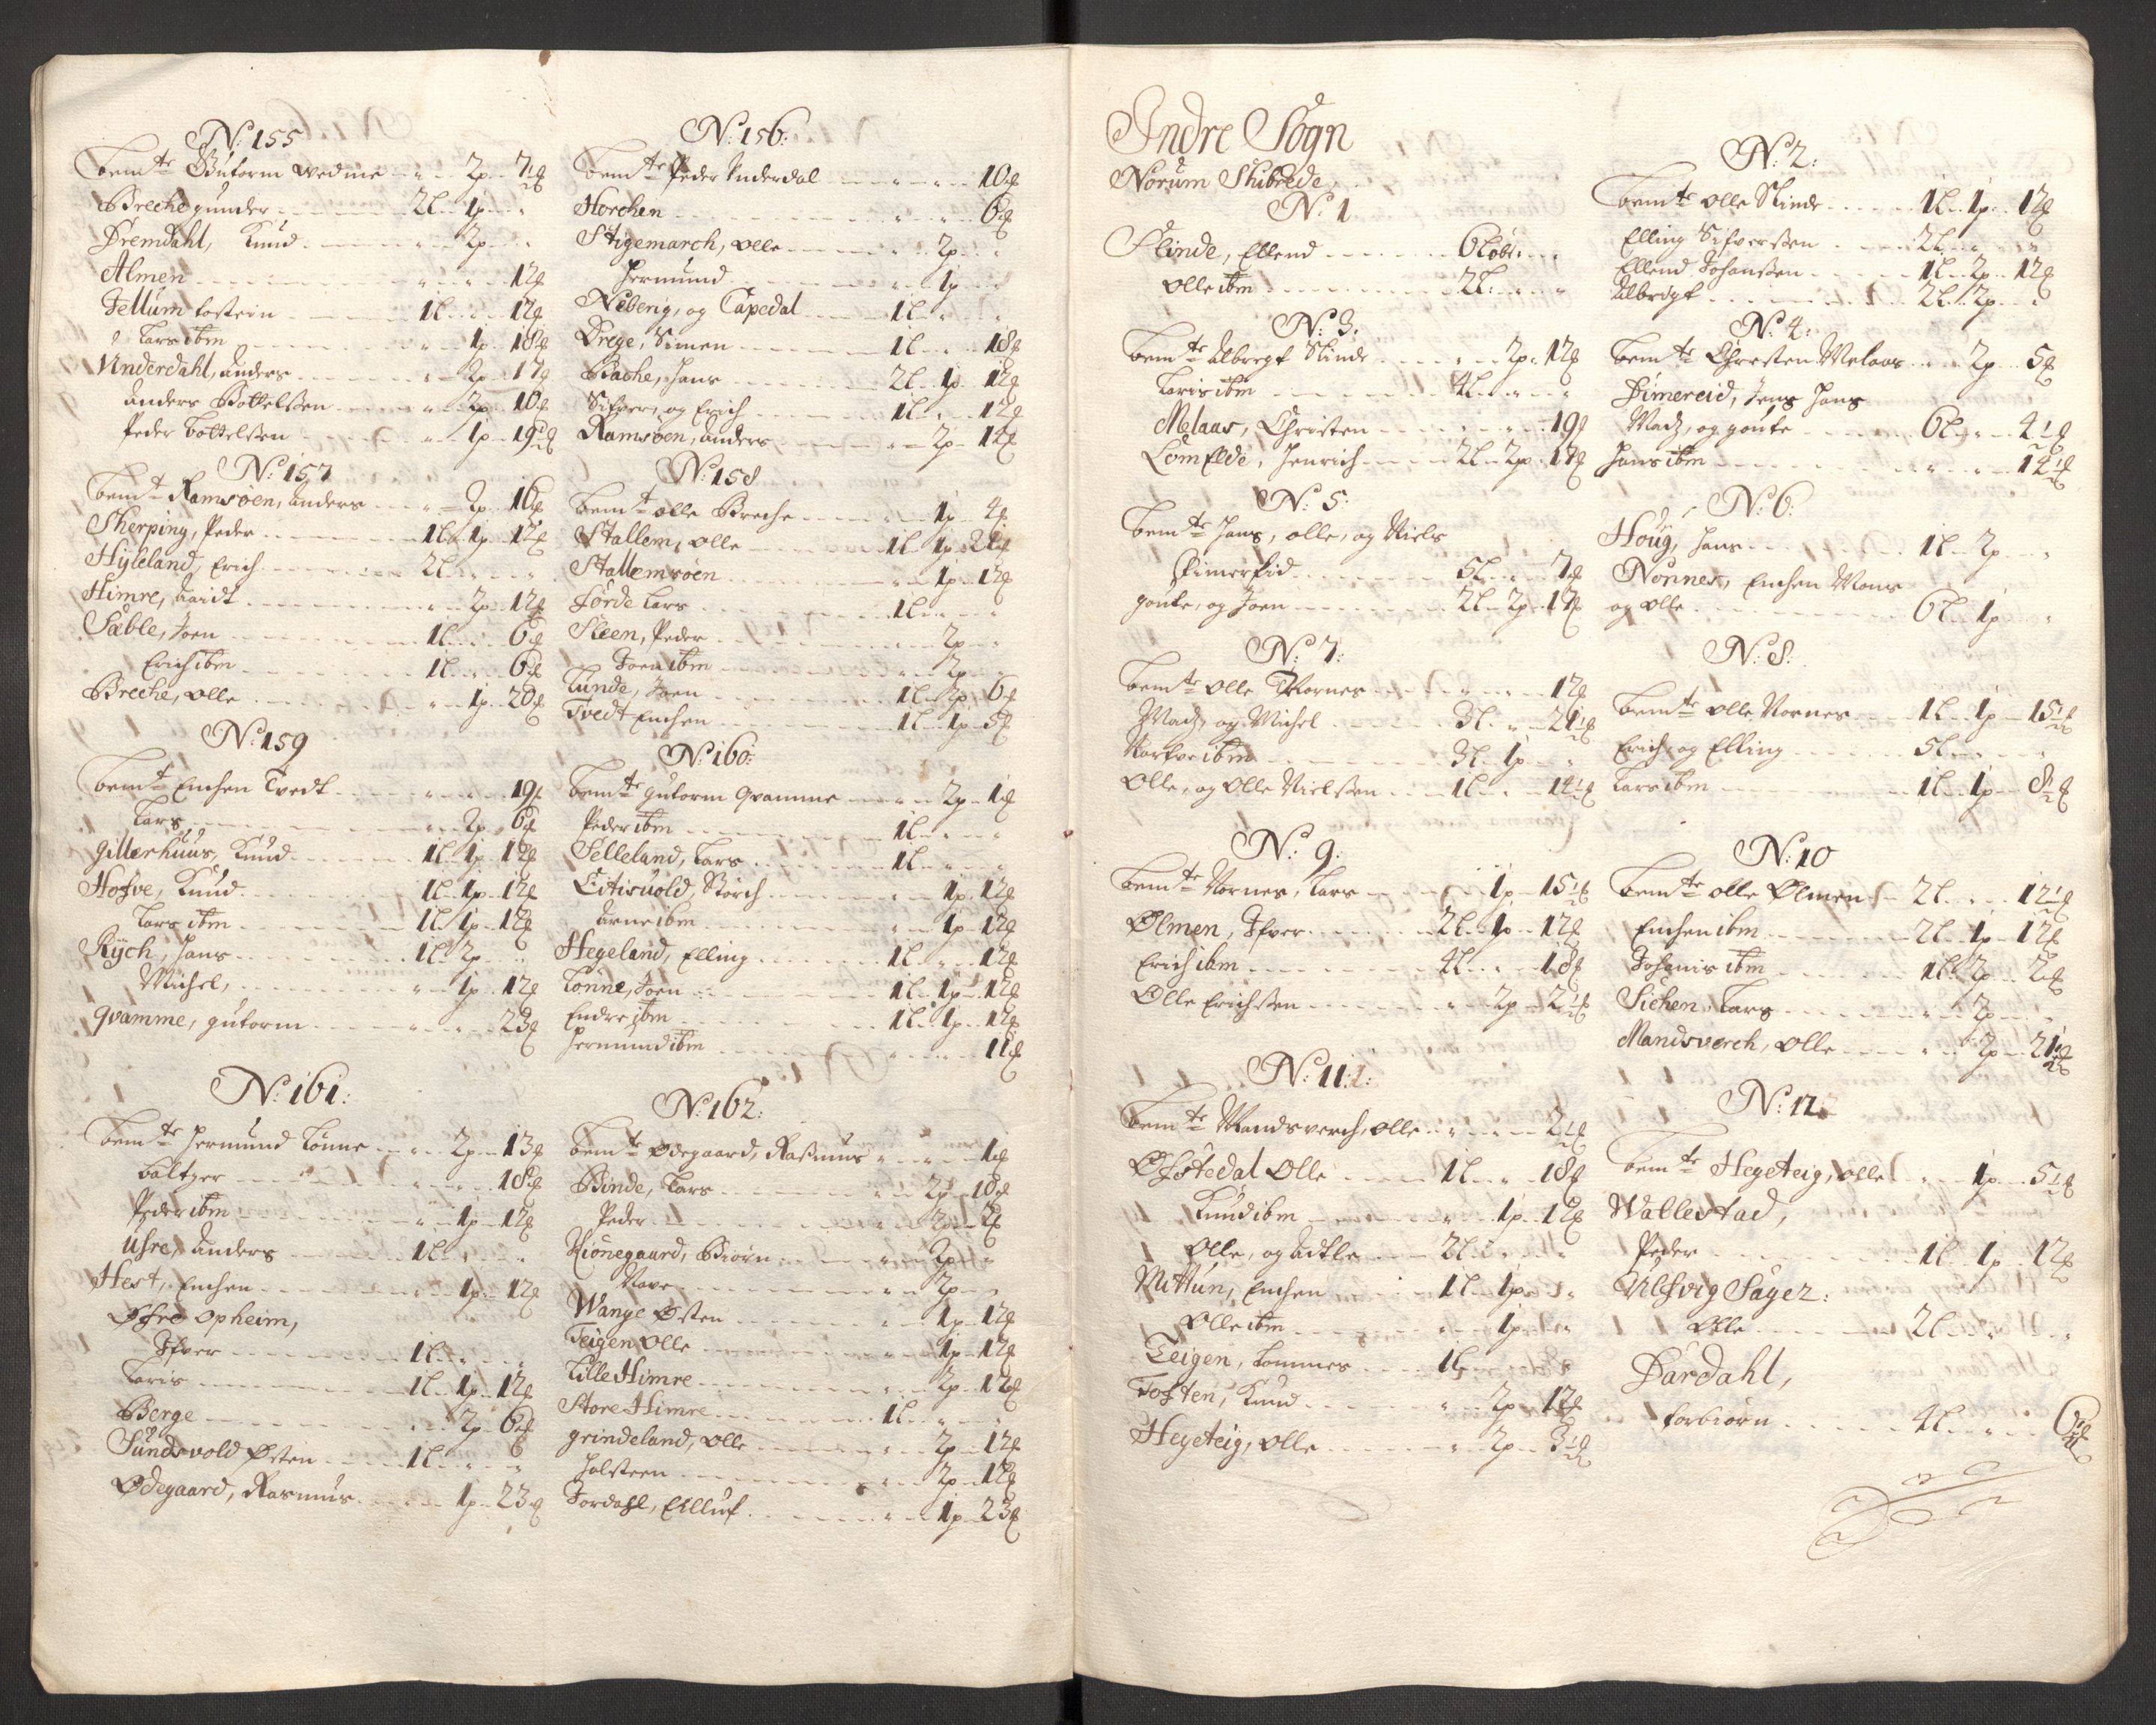 N: 155
bemte Gutorm Wedvie " 2p 7½f
Breche gunder 2l 1p "
Dremdahl, Knud " 2p "
Almen " " 12f
Fellum Tostein 1l " 12f
Lars ibm " 1p 18f
Underdahl, anders " 2p 17f
anders Bottelsen " 2p 10f
Peder bottelsen " 1p 19½f
N: 157
bemte Ramsøen, anders " 2p 16f
Skerping, Peder 1l 1p 12f
Hÿleland, Erich 2l " "
Himre, " 2p 12f
Sæble, Joen 1l " 6f
Erich ibm 1l " 6f
Breche, olle " 1p 20f
N: 159
bemte Enchen Tvedt " " 19f
Lars " 2p 6f
gitterhuus, Knud 1l 1p 12f
Hofve, Knud 1l 1p 12f
Lars ibm 1l 1p 12f
Rÿch, Hans 1l 2p "
Michel, " 1p 12f
qvamme, gutorm " " 23f
N: 161:
bemte Hermund Lønne " 2p 13f
baltzer " " 18f
Peder ibm " 1p 12f
Uhre, Anders 1l " "
Hest, Enchen " 1p 12f
Øfre Opheim,
Ifver 1l " "
Laris 1l 1p 12f
Berge " 2p 6f
Sundsvold Østen 1l " "
Ødegaard, Rasmus " 1p 23f
N: 156:
bemte Peder Underdal " " 10f
Horchen " " 6f
Stigemarch, olle " 2p "
Hermund " 1p "
Neberig, og Capedal 1l " "
Drege, Simen 1l " 18f
Bache, Hans 2l 1p 12f
Sifver, og Erich 1l " 12f
Ramsøen, anders " 2p 12f
N: 158
bemte olle Breche " 1p 4f
Stallem, olle 1l 1p 21f
Stallemsøen " 1p 12f
Førde Lars 1l " "
Steen, Peder " 2p "
Joen ibm " 2p "
Lunde, Joen 1l 2p 6f
Tvedt Enchen 1l 1p 5f
N: 160:
bemte gutorm qvamme " 2p 1f
Peder ibm 1l " "
Selleland, Lars 1l " "
Eitisuold, Storch " 1p 12f
Arne ibm " 1p 12f
Hegeland, Elling 1l " 12f
Lønne, Joen 1l 1p 12f
Endre ibm 1l 1p 12f
Hermund ibm " " 11f
N: 162:
bemte Ødegaard, Rasmus " " 1f
Binde, Lars " 2p 18f
Peder " 2p 2f
Kiønegaard, Biørn " 2p "
Nave " 2p "
Wange Østen " 1p 12f
Teigen olle " 1p 12f
Lille Himre " 2p 12f
Store Himre 1l " "
grindeland, olle " 2p 12f
Holsteen " 2p 12f
Fordahl, Elluf " 1p 23f
Indre Sogn
Norum Skibrede,
N: 1
Slinde, Ellend 6 løbr: "
Olle ibm 2l " "
N: 3.
bemte Albregt Slinde " 2p 12f
Laris ibm 4l " "
Melaas, Christen " " 19f
Lomelde, Henrich 2l 2p 17f
N: 5.
bemte Hans, olle, og Niels
Fimerfid 5l " 7f
goute, og Joen 2l 2p 17f
N: 7:
bemte Olle Nornes " " 12f
Madz, og Michel 3l " 21½f
ibm 3l 1p "
Olle, og Olle Nielsen 1l " 14½f
N: 9:
bemte Nornes, Lars " 1p 15½f
Ølmen, Ifver 2l 1p 12f
Erich ibm 4l " 18f
Olle Erichsen " 2p 2½f
N: 11:
bemte Mandsverch, olle " " 2½f
Øfstedal Olle 1l " 18f
Knud ibm " 1p 12f
Olle, og Adtle 2l " "
Mittun, Enchen 1l 1p "
Olle ibm " 1p "
Teigen, Tommes 1l " "
Toften, Knud " 2p 12f
Heyeteig, olle " 2p 3½f
N: 2:
bemte Olle Slinde 1l 1p 12f
Elling Sifversen 2l " "
Ellend Johansen 1l 2p 12f
Albregt 2l 2p "
N: 4:
bemte Christen Melaas " 2p 5f
Dimereid, Jens Hans
Madz, og goute 6l " 4½f
Hans ibm " " 14½f
N: 6:
Houg, Hans 1l 2p "
Nornnes, Enchen Mons
og olle 6l 1p "
N: 8.
bemte Olle Nornes 1l 1p 15½f
Erich, og Elling 5l " "
Lars ibm 1l 1p 8½f
N: 10
bemte olle Ølmen 2l " 12½f
Enchen ibm 2l 1p 12f
Johanis ibm 1l 2p 2f
Sichen, Lars " 2p "
Mandsverch, olle " 2p 21½f
N: 12
bemte Heyeteig, olle " 1p 5½f
Wallestad,
Peder 1l 1p 12f
Ulfvig Sager:
Olle 2l " "
Dardahl,
Torbiørn 4l " 6½f